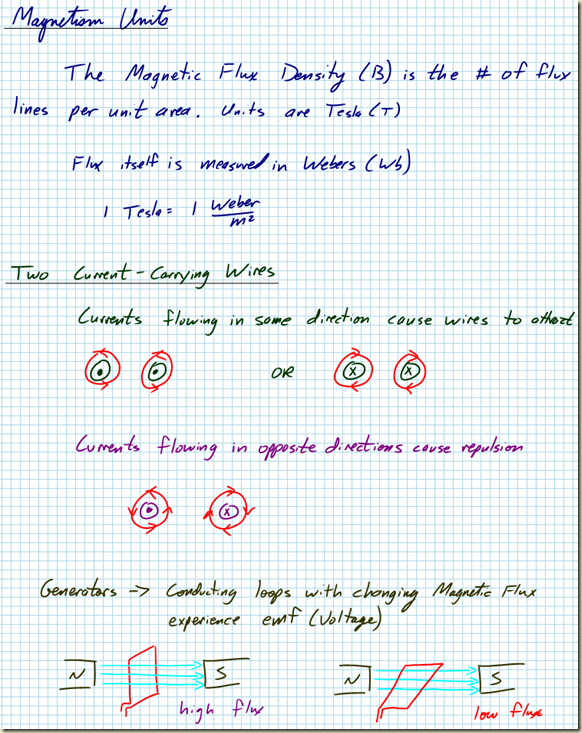 Magnetism Units
The Magnetic Flux Density (B) is the # of flux
lines per unit area. Units are Tesla (T)
Flux itself is measured in Webers (Wb)
1 Tesla = 1 Weber/m²
Two Current-Carrying Wires
Currents flowing in same direction cause wires to attract
OR x x
Currents flowing in opposite directions cause repulsion
x
Generators -> Conducting loops with changing Magnetic Flux
experience emf (Voltage)
N S N S
high flux low flux